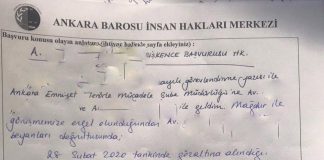 ANKARA BAROSU İNSAN HAKLARI MERKEZİ
Başvuru konusu olayın anlatımı (ihtiyaç halinde sayfa ekleyiniz) :
A. İŞKENCE BAŞVURUSU HK.
sayılı görevlendirme yazısı ile
Ankara Emniyet Terörle Mücadele Şube Müdürlüğü'ne Av.
ve A ile geldim. Mağdur ile
görüşmemize engel olunduğundan Av.
beyanları doğrultusunda;
28 Şubat 2020 tarihinde gözaltına alındığı